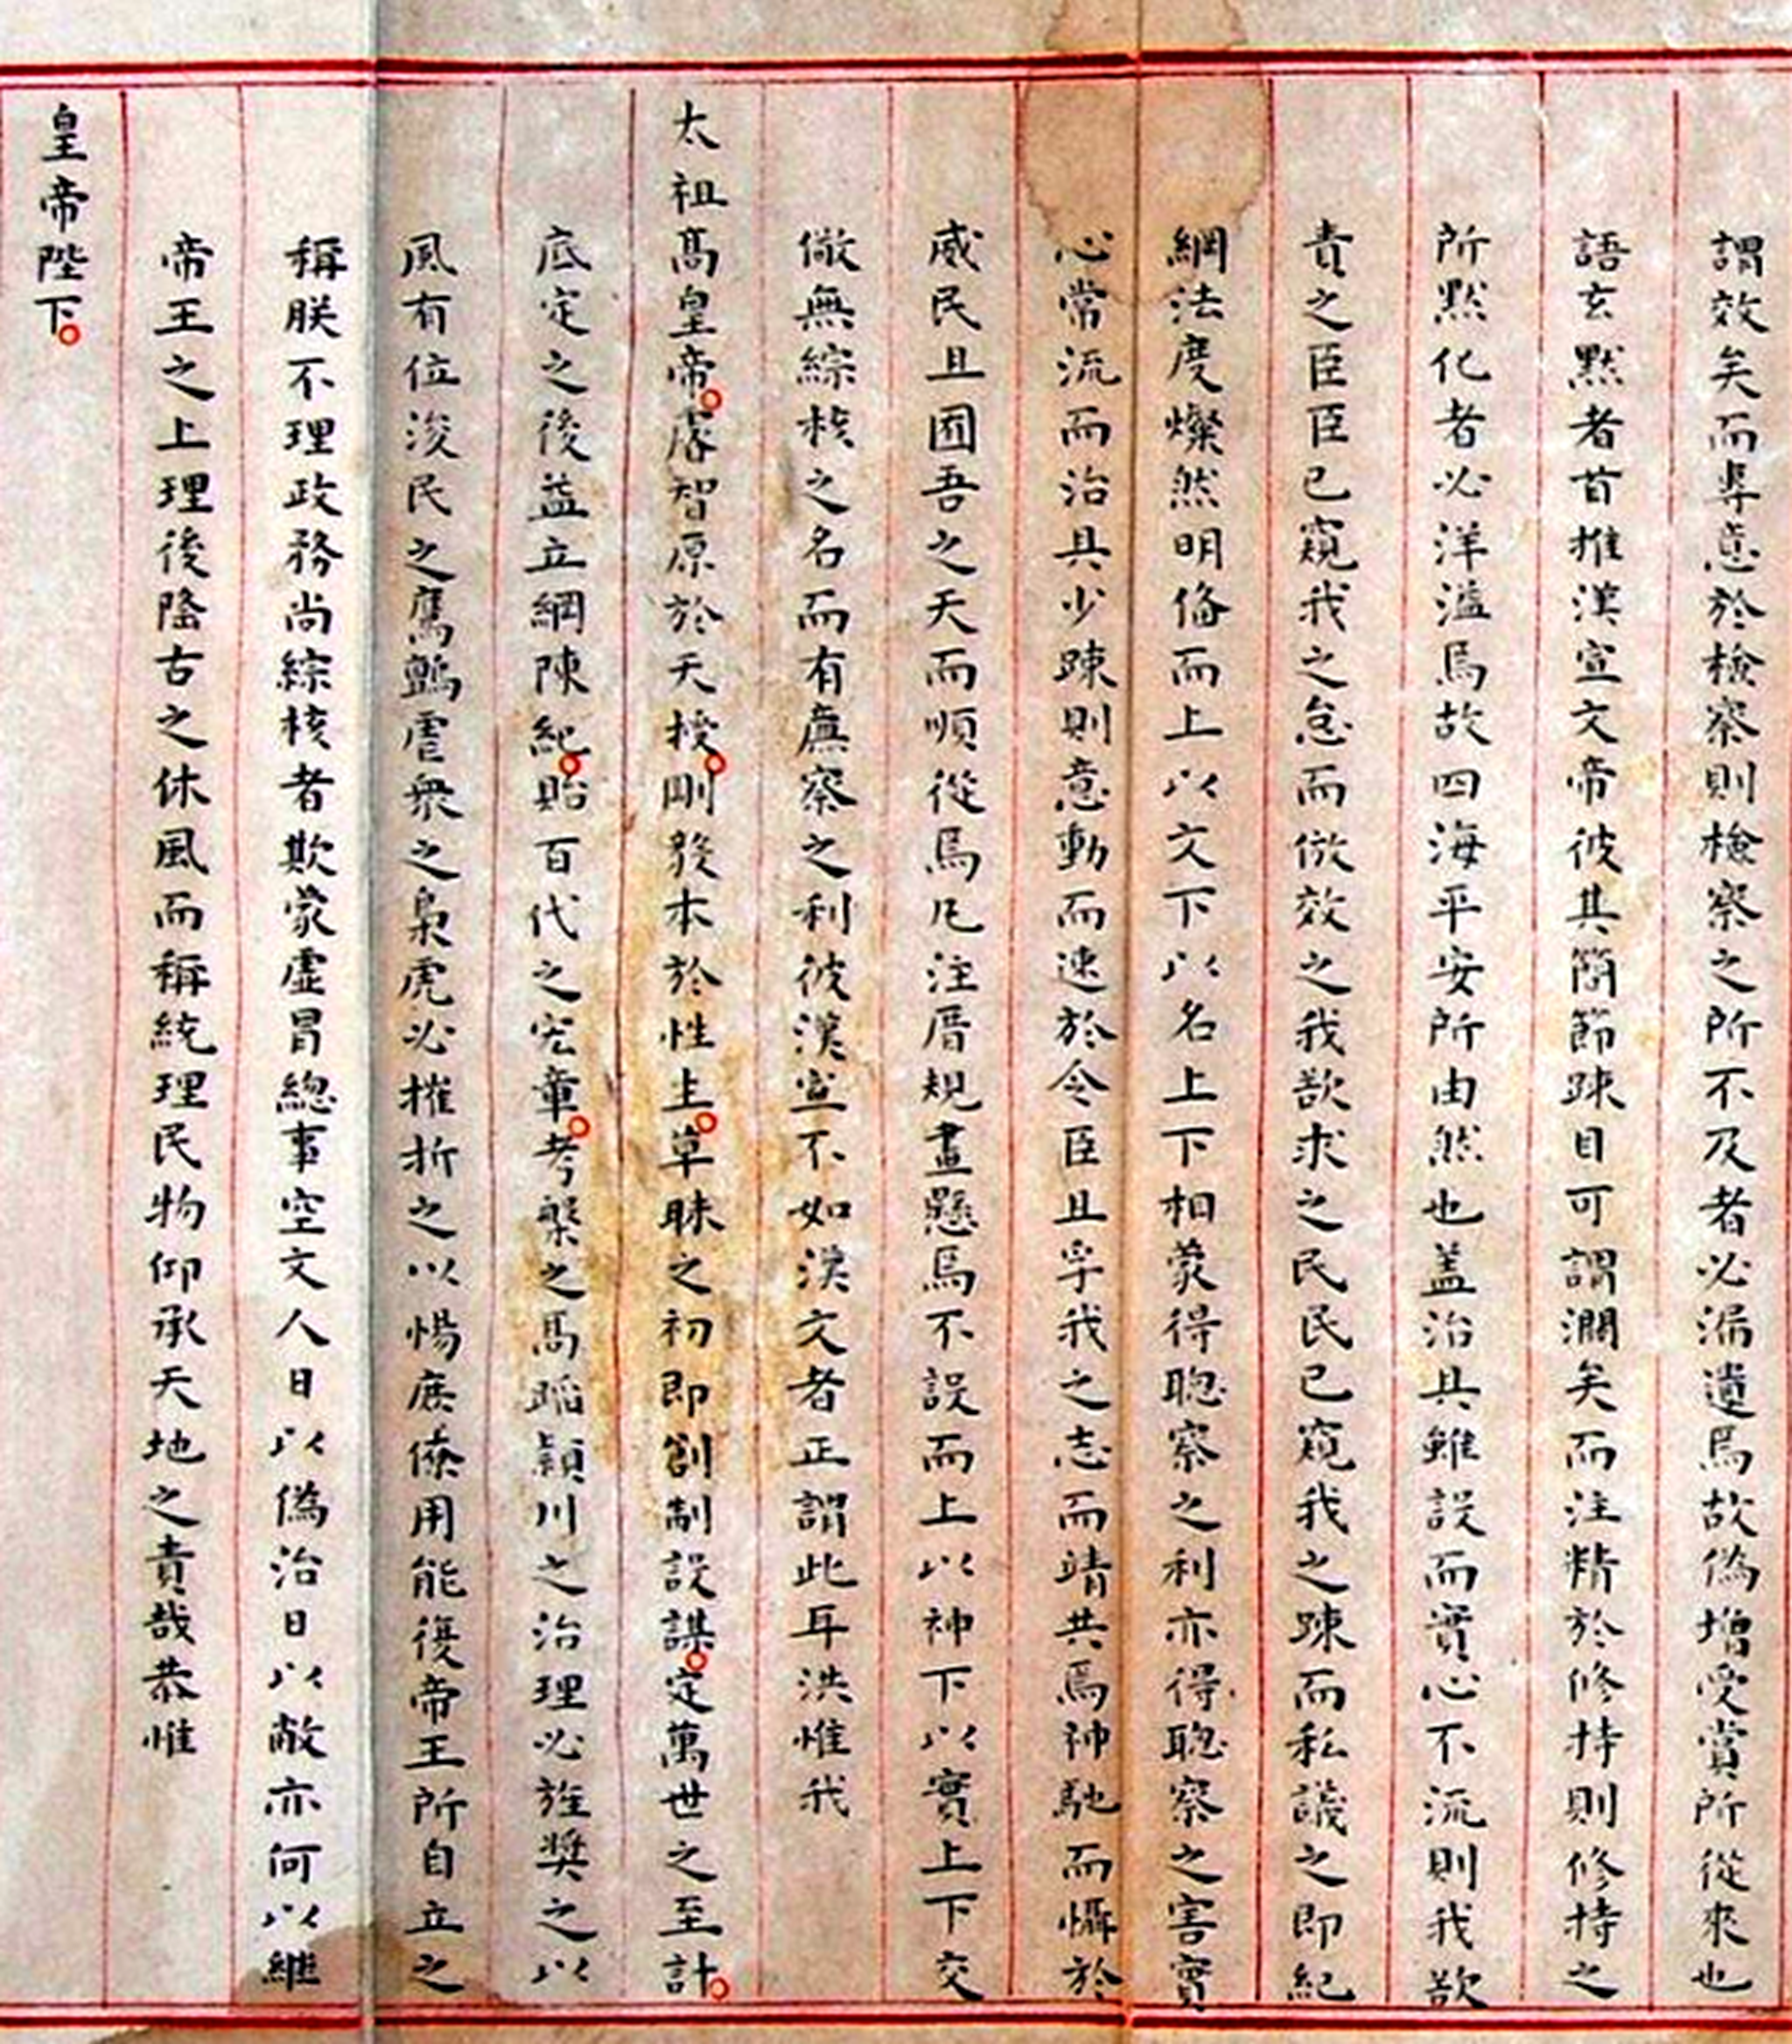 謂效矣而專意於檢察則檢察之所不及者必漏遺焉故偽增受賞所從來也
語玄默者首推漢宣文帝彼其簡節踈目可謂濶矣而注精於修持則修持之
所默化者必洋溢焉故四海平安所由然也盖治具雖設而實心不流則我欲
責之臣臣已窺我之怠而倣效之我欲求之民民已窺我之踈而私議之即紀
綱法度燦然明俻而上以文下以名上下相蒙得聦察之利亦得聦察之害實
心常流而治具少踈則意動而速於令臣且孚我之志而靖共焉神馳而懾於
威民且囿吾之天而順從焉凡注厝規畫懸焉不設而上以神下以實上下交
儆無綜核之名而有廡察之利彼漢宣不如漢文者正謂此耳洪惟我
太祖髙皇帝睿智原於天授剛毅本於性生草昧之初即創制設謀定萬世之至計
底定之後益立綱陳紀貽百代之宏章考槃之馬蹈穎川之治理必旌奬之以
風有位浚民之鷹鸇虐衆之梟虎必摧折之以惕庶僚用能復帝王所自立之
稱朕不理政務尚綜核者欺蒙虛冒總事空文人日以偽治日以敝亦何以繼
帝王之上理後隆古之休風而稱統理民物仰承天地之責哉恭惟
皇帝陛下